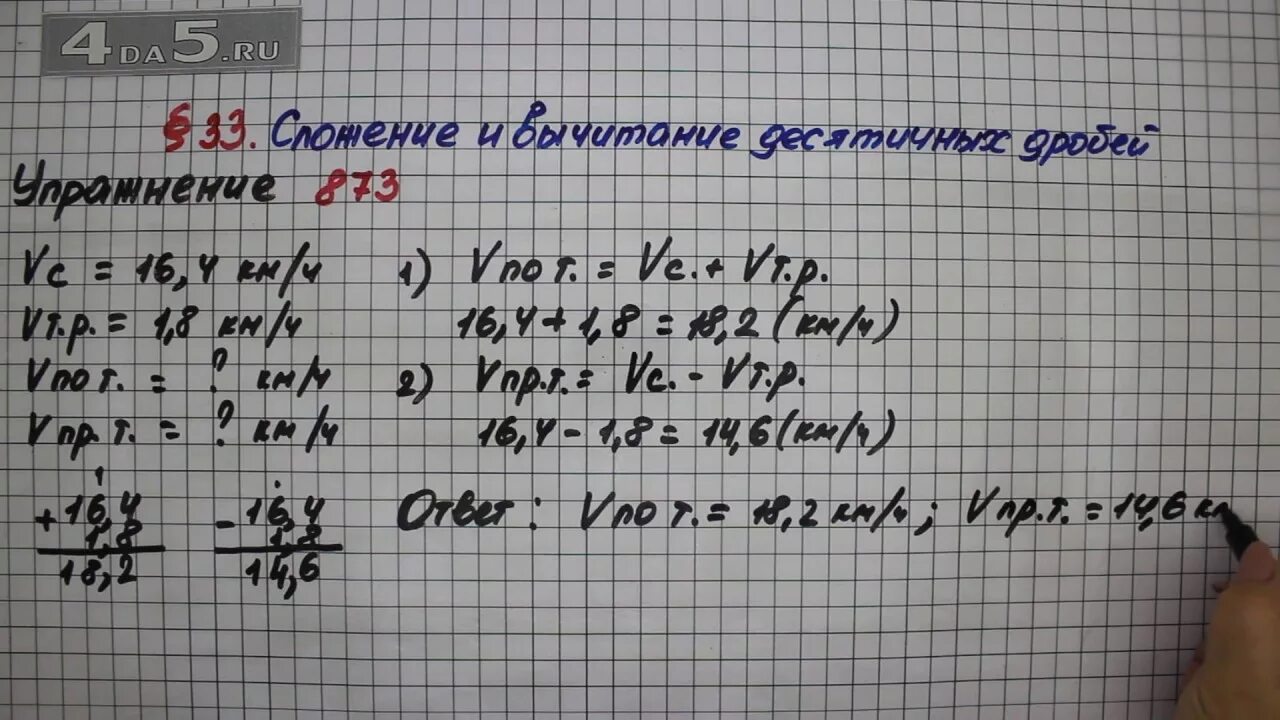 4DA5.RU
§ 33. Сложение и вычитание десятичных дробей
Упражнение 873
Vс = 16,4 км/ч
Vт.р. = 1,8 км/ч
Vпо т. = ? км/ч
Vпр. т. = ? км/ч
1) Vпо т. = Vс. + Vт.р.
16,4 + 1,8 = 18,2 (км/ч)
2) Vпр.т. = Vс. - Vт.р.
16,4 - 1,8 = 14,6 (км/ч)
1
+ 16,4
1,8
18,2
- 16,4
1,8
14,6
Ответ: Vпо т. = 18,2 км/ч; Vпр.т. = 14,6 км